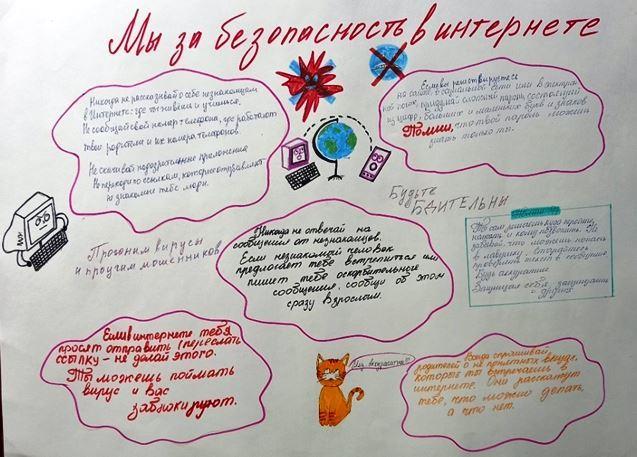 Мы за безопасность в интернете
Никогда не рассказывай о себе незнакомцам
в Интернете: где ты живёшь и учишься.
Не сообщай свой номер телефона, где работают
твои родители и их номера телефонов.
Не скачивай подозрительные приложения
Не переходи по ссылкам, которые отправляют
незнакомые тебе люди.
Если вы регистрируетесь
на сайте, в социальной сети или в электрон
ной почте, придумай сложный пароль, состоящий
из цифр, больших и маленьких букв и знаков
Помни, что твой пароль можешь
знать только ты.
Будьте
БДИТЕЛЬНЫ
Прогоним вирусы
и прочих мошенников
Никогда не отвечай на
сообщения от незнакомцев.
Если незнакомый человек
предлагает тебе встретиться или
пишет тебе оскорбительные
сообщения, сообщи об этом
сразу взрослым.
Ты сам решаешь, что прочти,
нажать и кому позвонить. Не
забывай, что можешь попасть
в ловушку.
Будь аккуратнее
Защищая себя, защищаешь
других
Если в интернете тебя
просят отправить (переслать
ссылку - не делай этого.
Ты можешь поймать
вирус и Вас
заблокируют.
Мы безопасны!!!
Всегда спрашивай
родителей о не понятных вещах,
которые ты встречаешь в
интернете. Они расскажут
тебе, что можно делать,
а что нет.